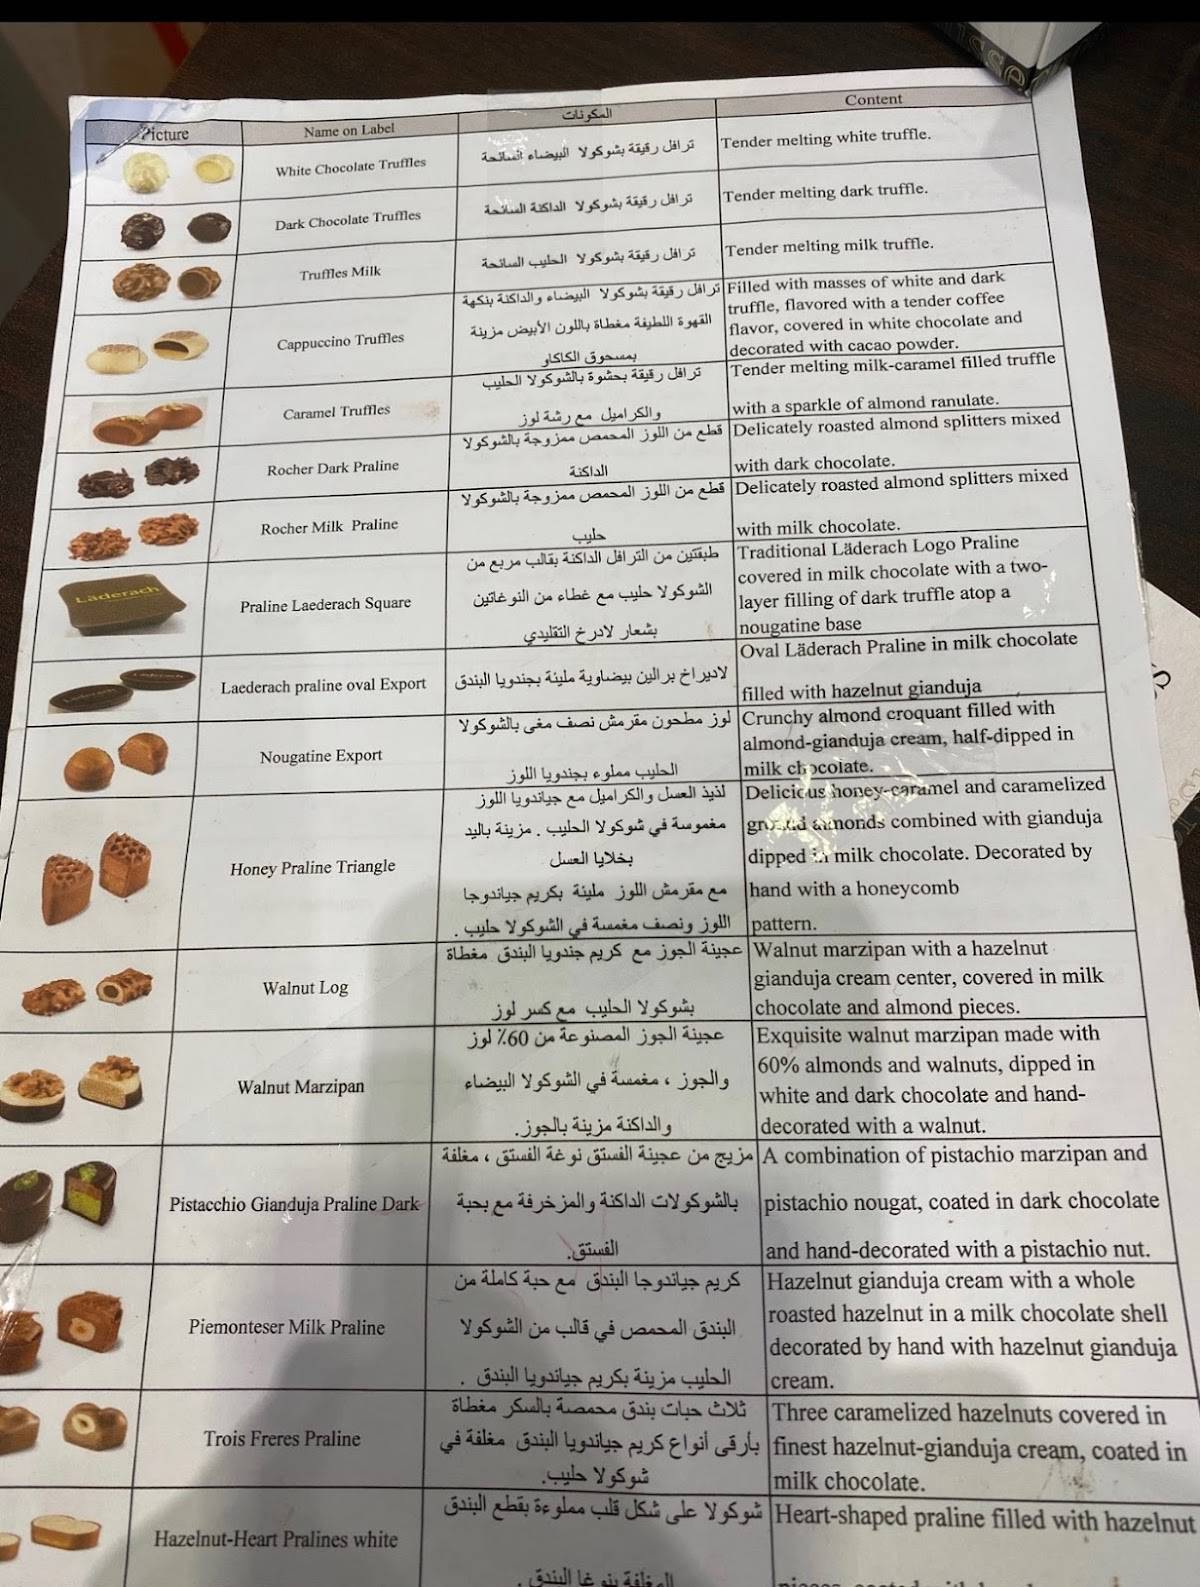 Picture
Name on Label
المكونات
Content
White Chocolate Truffles
ترافل رقيقة بشوكولا البيضاء السائحة
Tender melting white truffle.
Dark Chocolate Truffles
ترافل رقيقة بشوكولا الداكنة السائحة
Tender melting dark truffle.
Truffles Milk
ترافل رقيقة بشوكولا الحليب السائحة
Tender melting milk truffle.
Cappuccino Truffles
ترافل رقيقة بشوكولا البيضاء والداكنة بنكهة
القهوة اللطيفة مغطاة باللون الأبيض مزينة
بمسحوق الكاكاو
Filled with masses of white and dark
truffle, flavored with a tender coffee
flavor, covered in white chocolate and
decorated with cacao powder.
Caramel Truffles
ترافل رقيقة بحشوة بالشوكولا الحليب
والكراميل مع رشة لوز
Tender melting milk-caramel filled truffle
with a sparkle of almond ranulate.
Rocher Dark Praline
قطع من اللوز المحمص ممزوجة بالشوكولا
الداكنة
Delicately roasted almond splitters mixed
with dark chocolate.
Rocher Milk Praline
قطع من اللوز المحمص ممزوجة بالشوكولا
حليب
Delicately roasted almond splitters mixed
with milk chocolate.
Läderach
Praline Laederach Square
طبقتين من الترافل الداكنة بقالب مربع من
الشوكولا حليب مع غطاء من النوغاتين
بشعار لادرخ التقليدي
Traditional Läderach Logo Praline
covered in milk chocolate with a two-
layer filling of dark truffle atop a
nougatine base
Laederach praline oval Export
لاديراخ برالين بيضاوية مليئة بجندويا البندق
Oval Läderach Praline in milk chocolate
filled with hazelnut gianduja
Nougatine Export
لوز مطحون مقرمش نصف مغى بالشوكولا
الحليب مملوء بجندويا اللوز
Crunchy almond croquant filled with
almond-gianduja cream, half-dipped in
milk chocolate.
Honey Praline Triangle
لذيذ العسل والكراميل مع جياندويا اللوز
مغموسة في شوكولا الحليب . مزينة باليد
بخلايا العسل
مع مقرمش اللوز مليئة بكريم جياندوجا
اللوز ونصف مغمسة في الشوكولا حليب .
Delicious honey-caramel and caramelized
ground almonds combined with gianduja
dipped in milk chocolate. Decorated by
hand with a honeycomb
pattern.
Walnut Log
عجينة الجوز مع كريم جندويا البندق مغطاة
بشوكولا الحليب مع كسر لوز
Walnut marzipan with a hazelnut
gianduja cream center, covered in milk
chocolate and almond pieces.
Walnut Marzipan
عجينة الجوز المصنوعة من 60٪ لوز
والجوز ، مغمسة في الشوكولا البيضاء
والداكنة مزينة بالجوز.
Exquisite walnut marzipan made with
60% almonds and walnuts, dipped in
white and dark chocolate and hand-
decorated with a walnut.
Pistacchio Gianduja Praline Dark
مزيج من عجينة الفستق نوغة الفستق ، مغلفة
بالشوكولات الداكنة والمزخرفة مع بحبة
الفستق.
A combination of pistachio marzipan and
pistachio nougat, coated in dark chocolate
and hand-decorated with a pistachio nut.
Piemonteser Milk Praline
كريم جياندوجا البندق مع حبة كاملة من
البندق المحمص في قالب من الشوكولا
الحليب مزينة بكريم جياندويا البندق .
Hazelnut gianduja cream with a whole
roasted hazelnut in a milk chocolate shell
decorated by hand with hazelnut gianduja
cream.
Trois Freres Praline
ثلاث حبات بندق محمصة بالسكر مغطاة
بأرقى أنواع كريم جياندويا البندق مغلفة في
شوكولا حليب.
Three caramelized hazelnuts covered in
finest hazelnut-gianduja cream, coated in
milk chocolate.
Hazelnut-Heart Pralines white
شوكولا على شكل قلب مملوءة بقطع البندق
المغلفة بنوغا البندق .
Heart-shaped praline filled with hazelnut